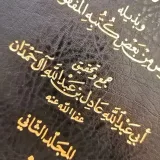 وبذيله
من بعض كتبه المفقو
جمع وتحقيق
أبي عبد الله عادل بن عبد الله آل حمدان
عفا الله عنه
المجلد الثاني